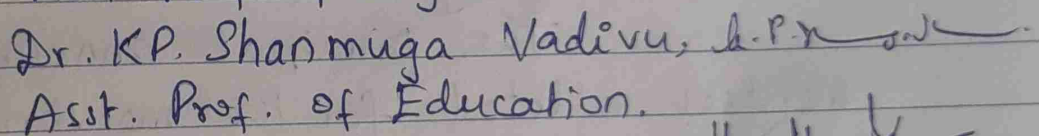 Dr. KP. Shanmuga Vadivu,
Asst. Prof. of Education.